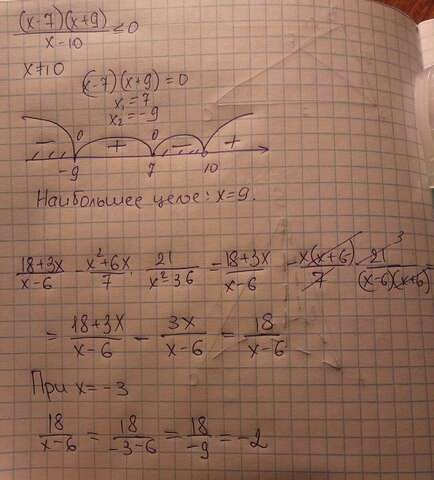 (x-7)(x+9)/x-10 ≤0
x≠10
(x-7)(x+9)=0
x₁=7
x₂=-9
- 0 + 0 - +
-9 7 10
Наибольшее целое: x=9.
18+3x/x-6 - x²+6x/7 · 21/x²-36 = 18+3x/x-6 - x(x+6)/7 · 21 3/(x-6)(x+6) =
= 18+3x/x-6 - 3x/x-6 = 18/x-6
При x=-3
18/x-6 = 18/-3-6 = 18/-9 = -2